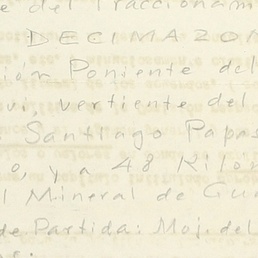 e del Fraccionam
DECIMAZON
ión Poniente del
vi, vertiente del
Santiago Papas
o, y a 48 Kilo
l Mineral de Gu
de Partida: Moj. del